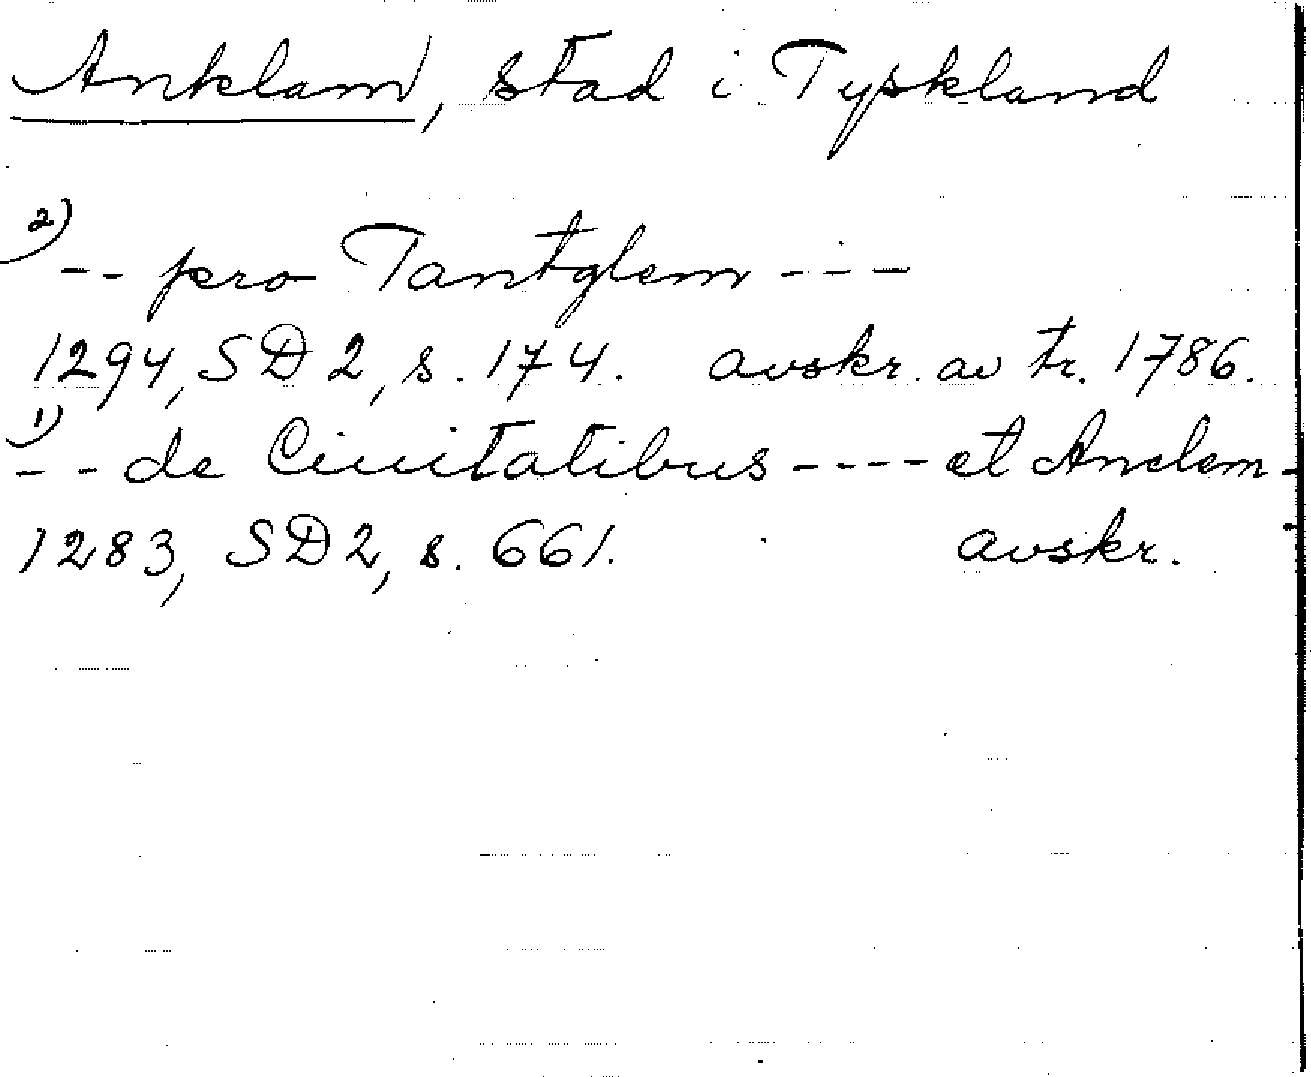 Anklam, stad i Tyskland
2)
-- pro Tantglem ---
1294, SD 2, s. 174. avskr. av tr. 1786.
1)
-- de Ciuitatibus ---- et Anclem -
1283, SD 2, s. 661. avskr.